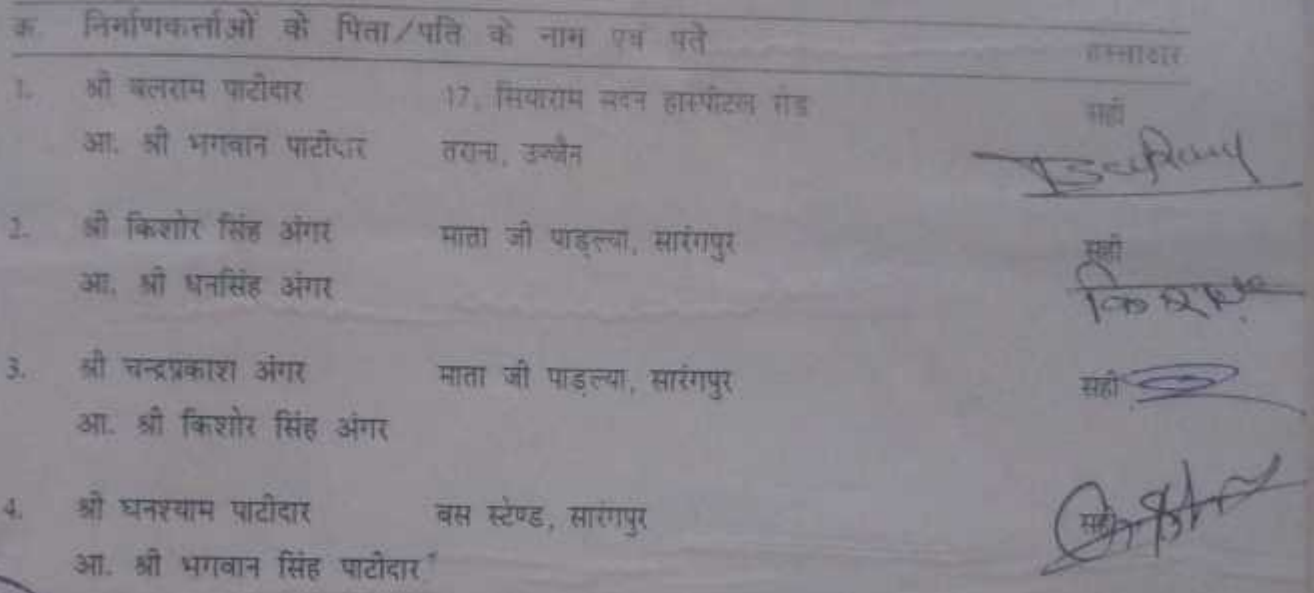 क. निर्माणकर्त्ताओं के पिता/पति के नाम एवं पते हस्ताक्षर
1. श्री बलराम पाटीदार 17, सियाराम सदन हास्पीटल रोड सही
आ. श्री भगवान पाटीदार तराना, उज्जैन
2. श्री किशोर सिंह अंगर माता जी पाड़ल्या, सारंगपुर सही
आ. श्री धनसिंह अंगर
3. श्री चन्द्रप्रकाश अंगर माता जी पाड़ल्या, सारंगपुर सही
आ. श्री किशोर सिंह अंगर
4. श्री घनश्याम पाटीदार बस स्टेण्ड, सारंगपुर सही
आ. श्री भगवान सिंह पाटीदार